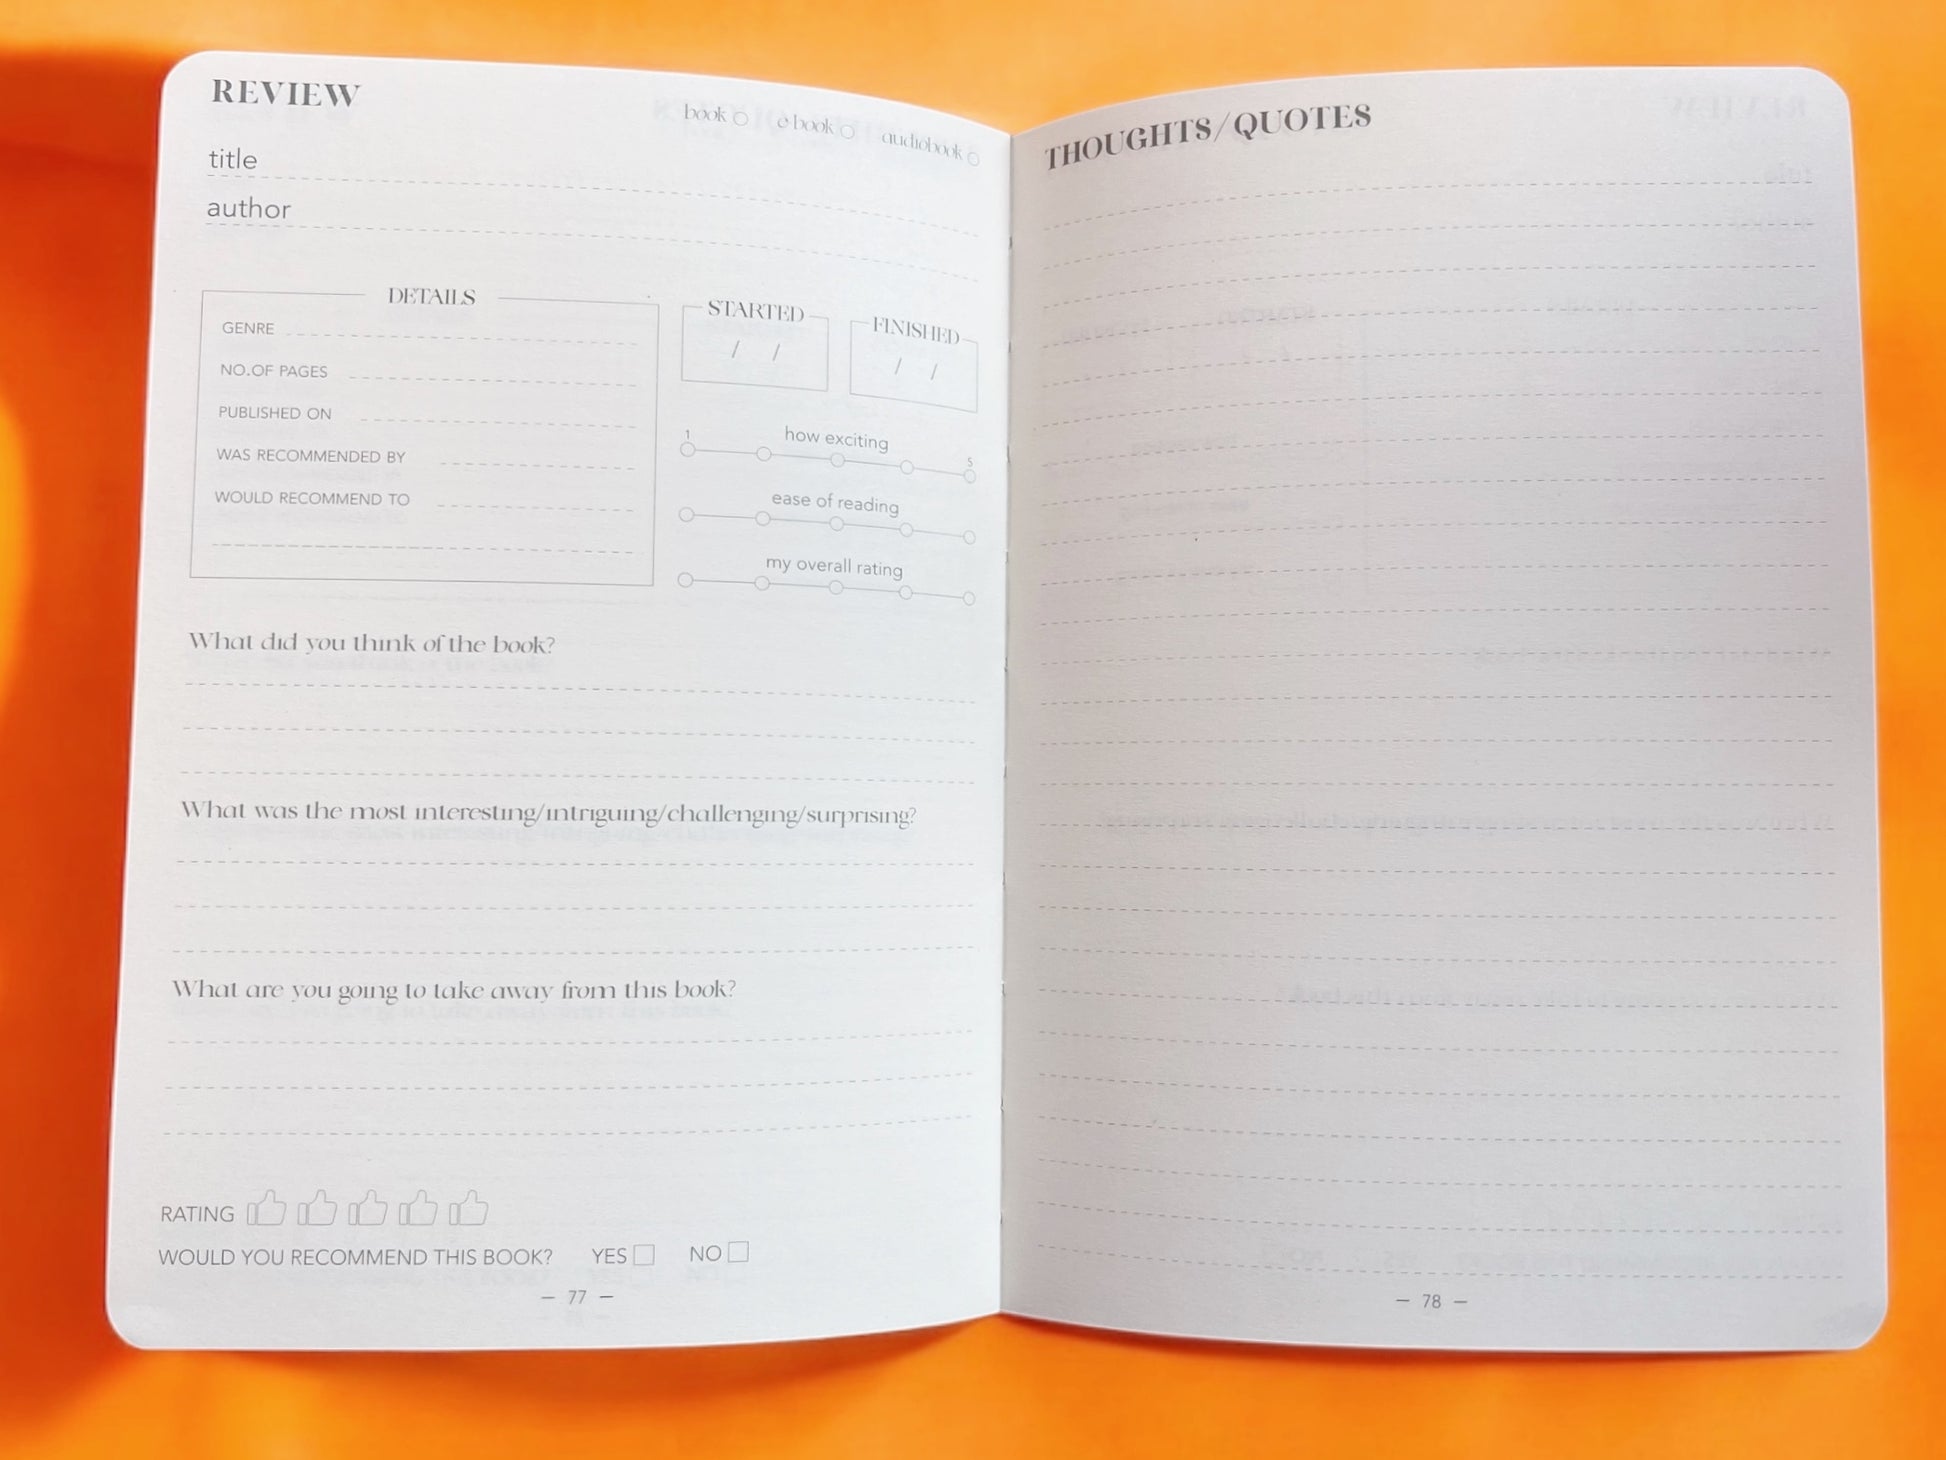 REVIEW
book e book audiobook
title
author
DETAILS
GENRE
NO.OF PAGES
PUBLISHED ON
WAS RECOMMENDED BY
WOULD RECOMMEND TO
STARTED
/ /
FINISHED
/ /
how exciting
1 5
ease of reading
my overall rating
What did you think of the book?
What was the most interesting/intriguing/challenging/surprising?
What are you going to take away from this book?
RATING
WOULD YOU RECOMMEND THIS BOOK? YES NO
— 77 —
THOUGHTS/QUOTES
— 78 —